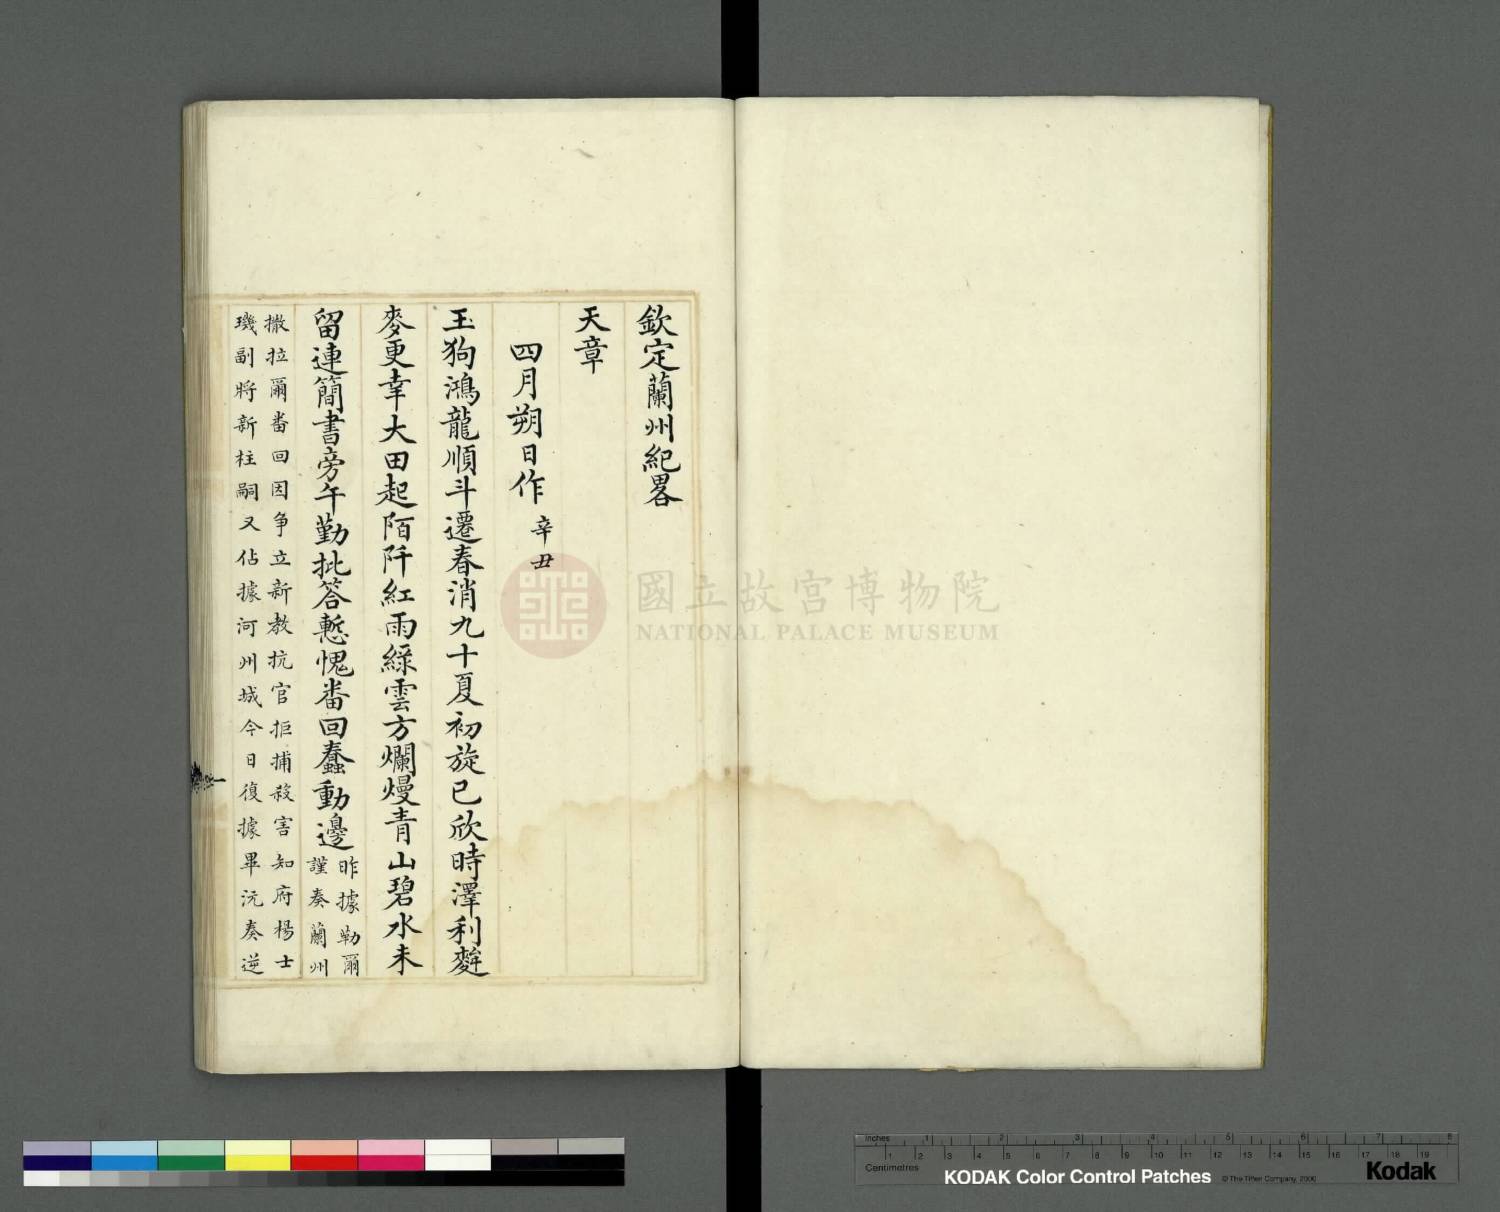 欽定蘭州紀畧
天章
四月朔日作 辛丑
玉狗鴻龍順斗遷春消九十夏初旋已欣時澤利麰
麥更幸大田起陌阡紅雨綠雲方爛熳青山碧水未
留連簡書旁午勤批答慙愧番回蠢動邊 昨據勒爾
謹奏蘭州
撒拉爾番回因爭立新教抗官拒捕殺害知府楊士
璣副將新柱嗣又佔據河州城今日復據畢沅奏逆
國立故宮博物院
NATIONAL PALACE MUSEUM
KODAK Color Control Patches
© The Tiffen Company, 2000
Kodak
Inches 1 2 3 4 5 6 7 8
Centimetres 1 2 3 4 5 6 7 8 9 10 11 12 13 14 15 16 17 18 19